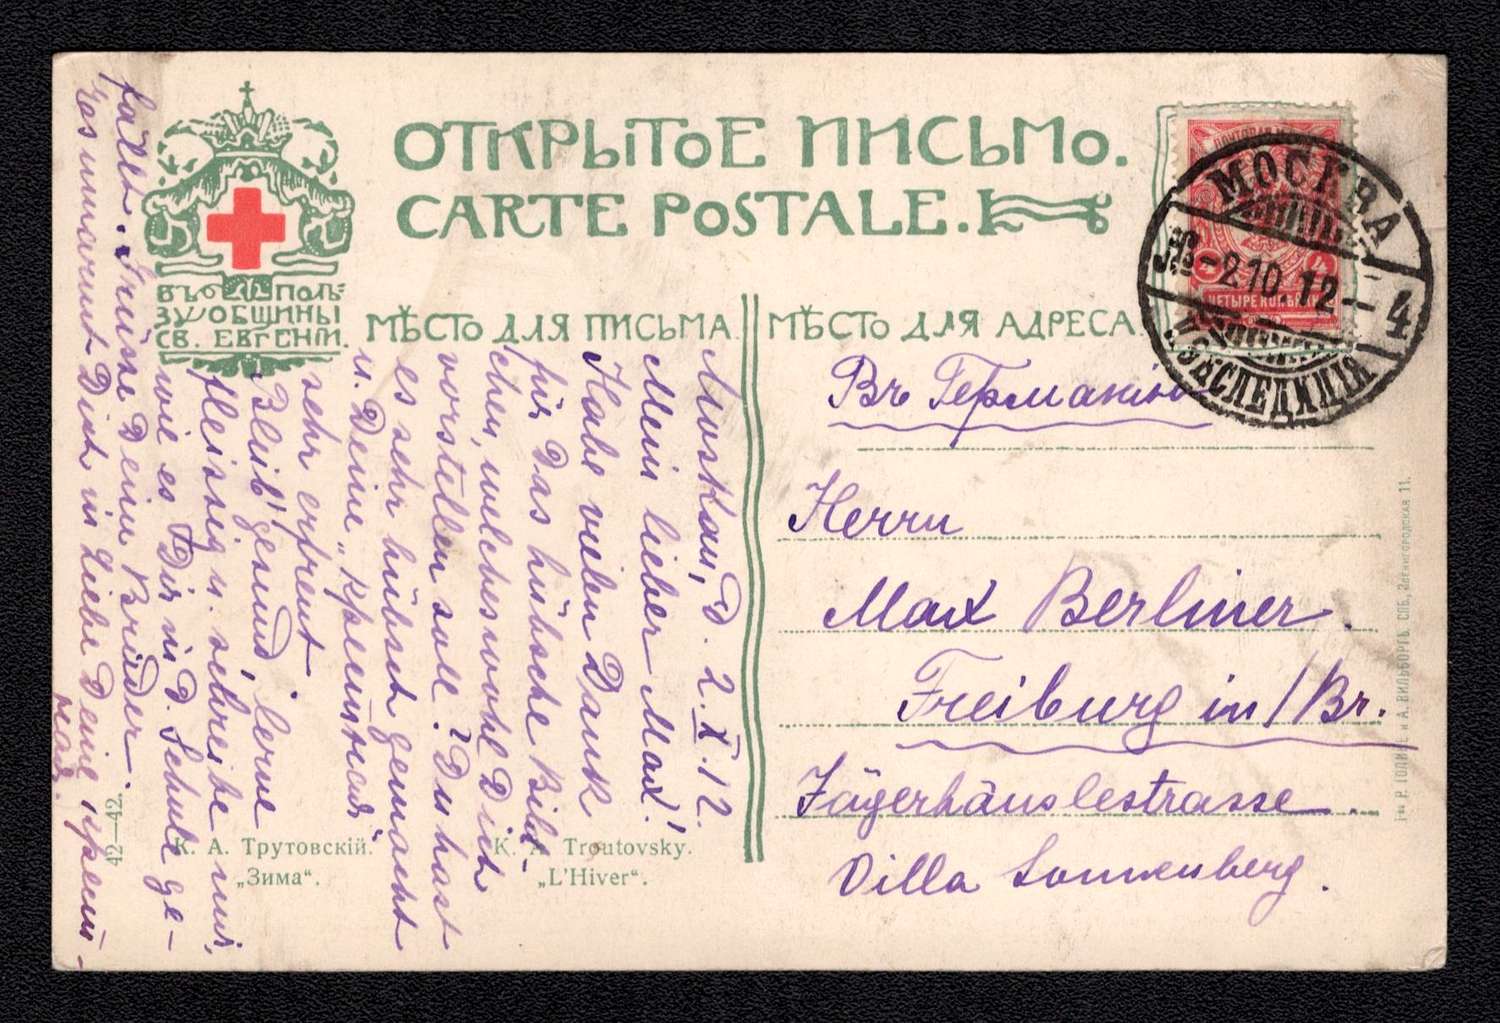 ОТКРЫТОЕ ПИСЬМО.
CARTE POSTALE.
ВЪ ПОЛЬ-
ЗУ ОБЩИНЫ
СВ. ЕВГЕНІИ.
МѢСТО ДЛЯ ПИСЬМА.
МѢСТО ДЛЯ АДРЕСА.
ПОЧТОВАЯ
4 4
ЧЕТЫРЕ КОПѢЙКИ
МОСКВА
-2.10.12-4
ЭКСПЕДИЦІЯ
Въ Германію
Herrn
Max Berliner.
Freiburg in/Br.
Jägerhäuslestrasse.
Villa Sonnenberg.
Moskau, d. 2.X.12.
Mein lieber Max!
Habe vielen Dank
für das hübsche Bild-
chen, welches wohl Dich
vorstellen soll? Du hast
es sehr hübsch gemacht
u. Deine „крестная“
sehr erfreut.
Bleib' gesund, lerne
fleissig u. schreibe mir,
wie es Dir in d. Schule ge-
fällt. Grüsse Deine Brüder.
Es umarmt Dich in Liebe Deine крест-
ная.
К. А. Трутовскій.
„Зима“.
K. A. Troutovsky.
„L'Hiver“.
42—42.
Т-во Р. ГОЛИКЕ и А. ВИЛЬБОРГЪ. СПБ., Звенигородская 11.